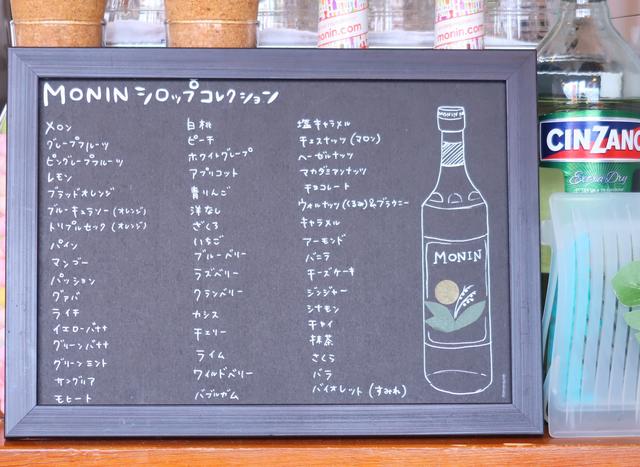 monin.com
monin.com
MONIN シロップコレクション
メロン
グレープフルーツ
ピングレープフルーツ
レモン
ブラッドオレンジ
ブルーキュラソー(オレンジ)
トリプルセック(オレンジ)
パイン
マンゴー
パッション
グァバ
ライチ
イエローバナナ
グリーンバナナ
グリーンミント
サングリア
モヒート
白桃
ピーチ
ホワイトグレープ
アプリコット
青りんご
洋なし
ざくろ
いちご
ブルーベリー
ラズベリー
クランベリー
カシス
チェリー
ライム
ワイルドベリー
バブルガム
塩キャラメル
チェスナッツ(マロン)
ヘーゼルナッツ
マカダミアンナッツ
チョコレート
ウォルナッツ(くるみ)&ブラウニー
キャラメル
アーモンド
バニラ
チーズケーキ
ジンジャー
シナモン
チャイ
抹茶
さくら
バラ
バイオレット(すみれ)
MONIN
CINZANO
Extra Dry